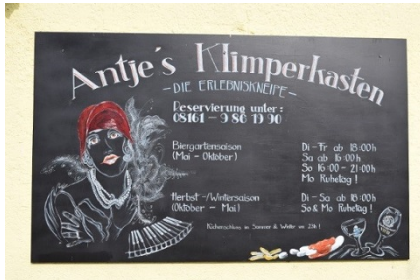 Antje's Klimperkasten
- DIE ERLEBNISKNEIPE -
Reservierung unter:
08161 - 9 86 19 90
Biergartensaison
(Mai - Oktober)
Di - Fr ab 18:00h
Sa ab 16:00h
So 16:00 - 21:00h
Mo Ruhetag!
Herbst-/Wintersaison
(Oktober - Mai)
Di - Sa ab 18:00h
So & Mo Ruhetag!
Küchenschluss im Sommer & Winter um 22h!